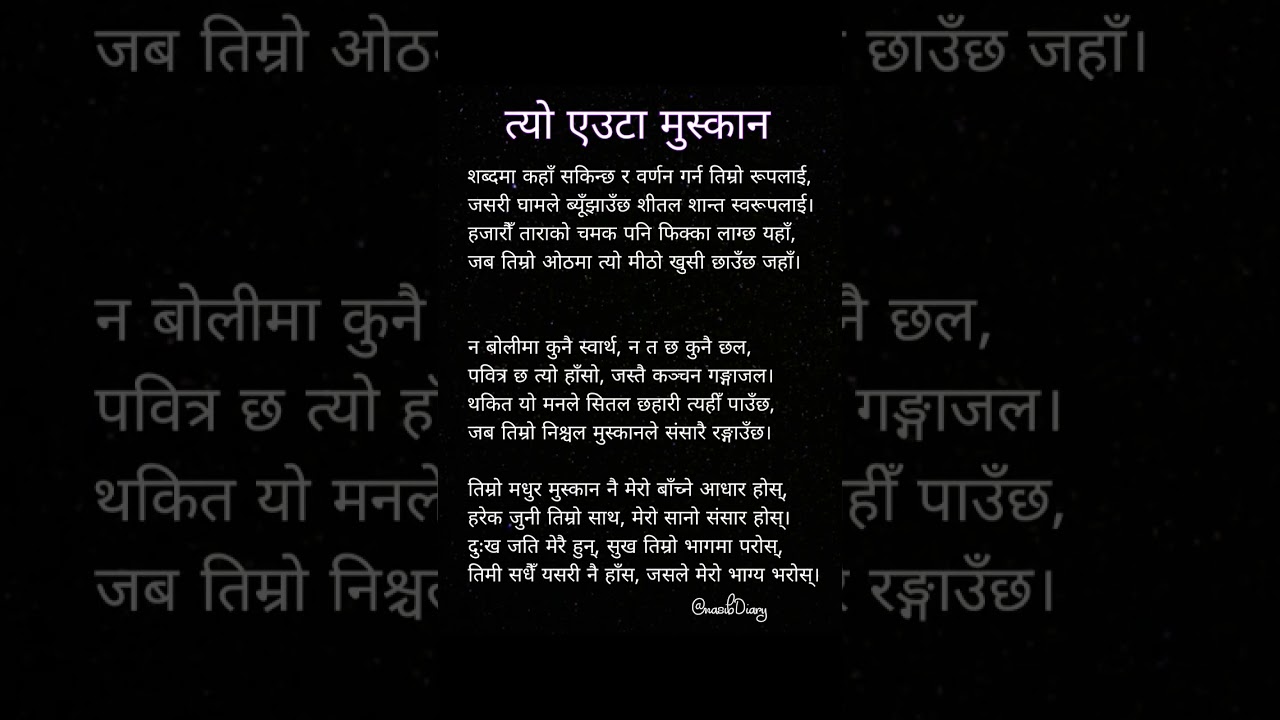 त्यो एउटा मुस्कान
शब्दमा कहाँ सकिन्छ र वर्णन गर्न तिम्रो रूपलाई,
जसरी घामले ब्यूँझाउँछ शीतल शान्त स्वरूपलाई।
हजारौँ ताराको चमक पनि फिक्का लाग्छ यहाँ,
जब तिम्रो ओठमा त्यो मीठो खुसी छाउँछ जहाँ।
न बोलीमा कुनै स्वार्थ, न त छ कुनै छल,
पवित्र छ त्यो हाँसो, जस्तै कञ्चन गङ्गाजल।
थकित यो मनले सितल छहारी त्यहीँ पाउँछ,
जब तिम्रो निश्चल मुस्कानले संसारै रङ्गाउँछ।
तिम्रो मधुर मुस्कान नै मेरो बाँच्ने आधार होस्,
हरेक जुनी तिम्रो साथ, मेरो सानो संसार होस्।
दुःख जति मेरै हुन्, सुख तिम्रो भागमा परोस्,
तिमी सधैँ यसरी नै हाँस, जसले मेरो भाग्य भरोस्।
@nasibDiary